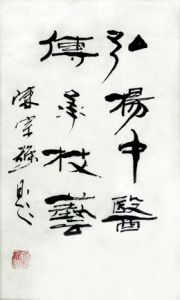 弘揚中醫
傳承技藝
陳宗題